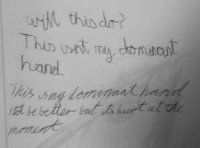 will this do?
This isnt my dominant
hand
This is my dominant hand
itd be better but its hurt at the
moment.